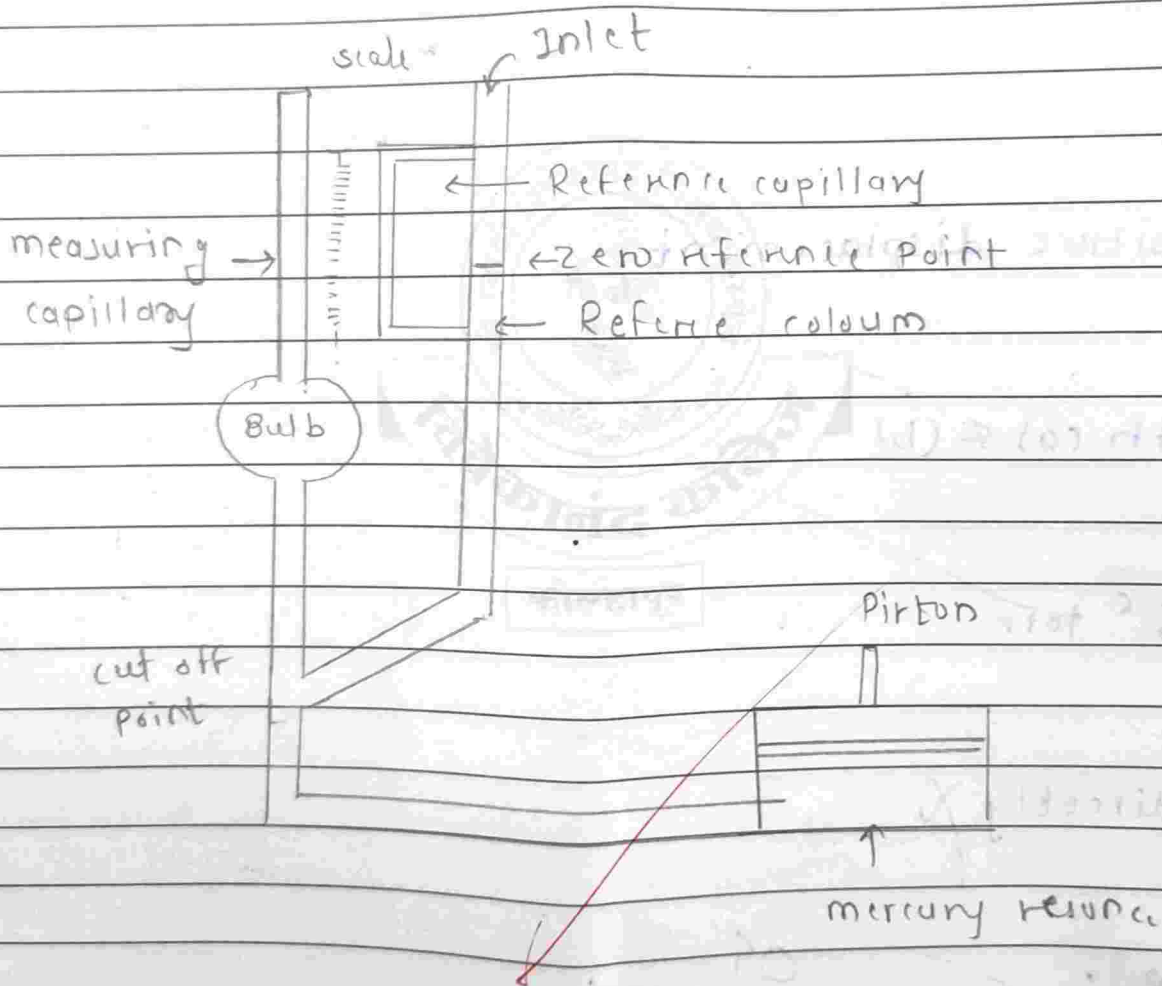 scale
Inlet
Reference capillary
measuring
capillary
Zero reference Point
Referne coloum
Bulb
cut off
point
Pirton
mercury